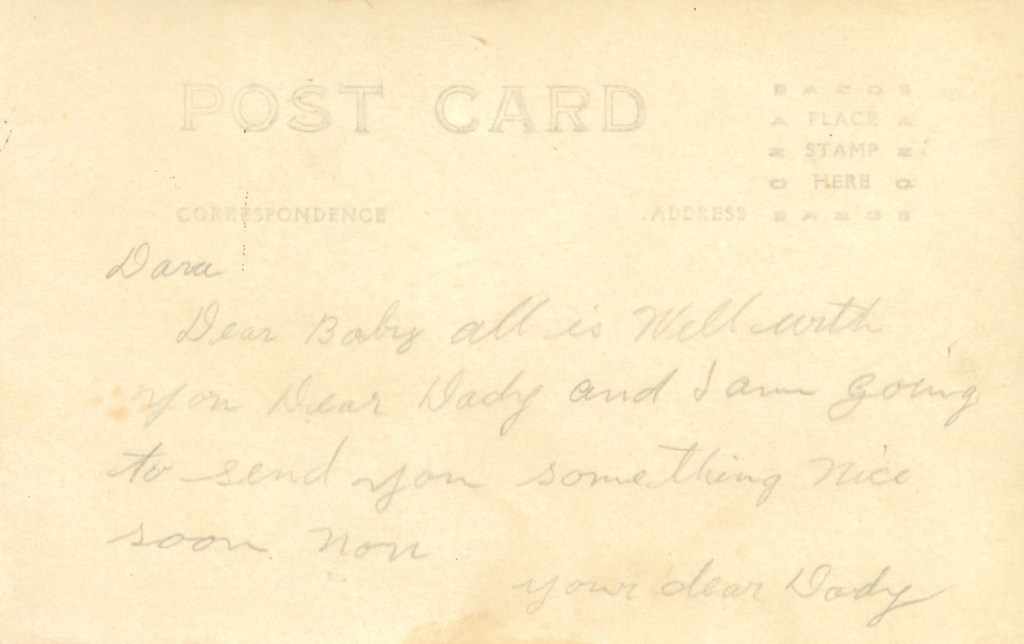 POST CARD
BAZOS
A PLACE A
Z STAMP Z
O HERE O
CORRESPONDENCE
ADDRESS
Dara
Dear Baby all is Well with
you Dear Dady and I am going
to send you something nice
soon non
your dear Dady